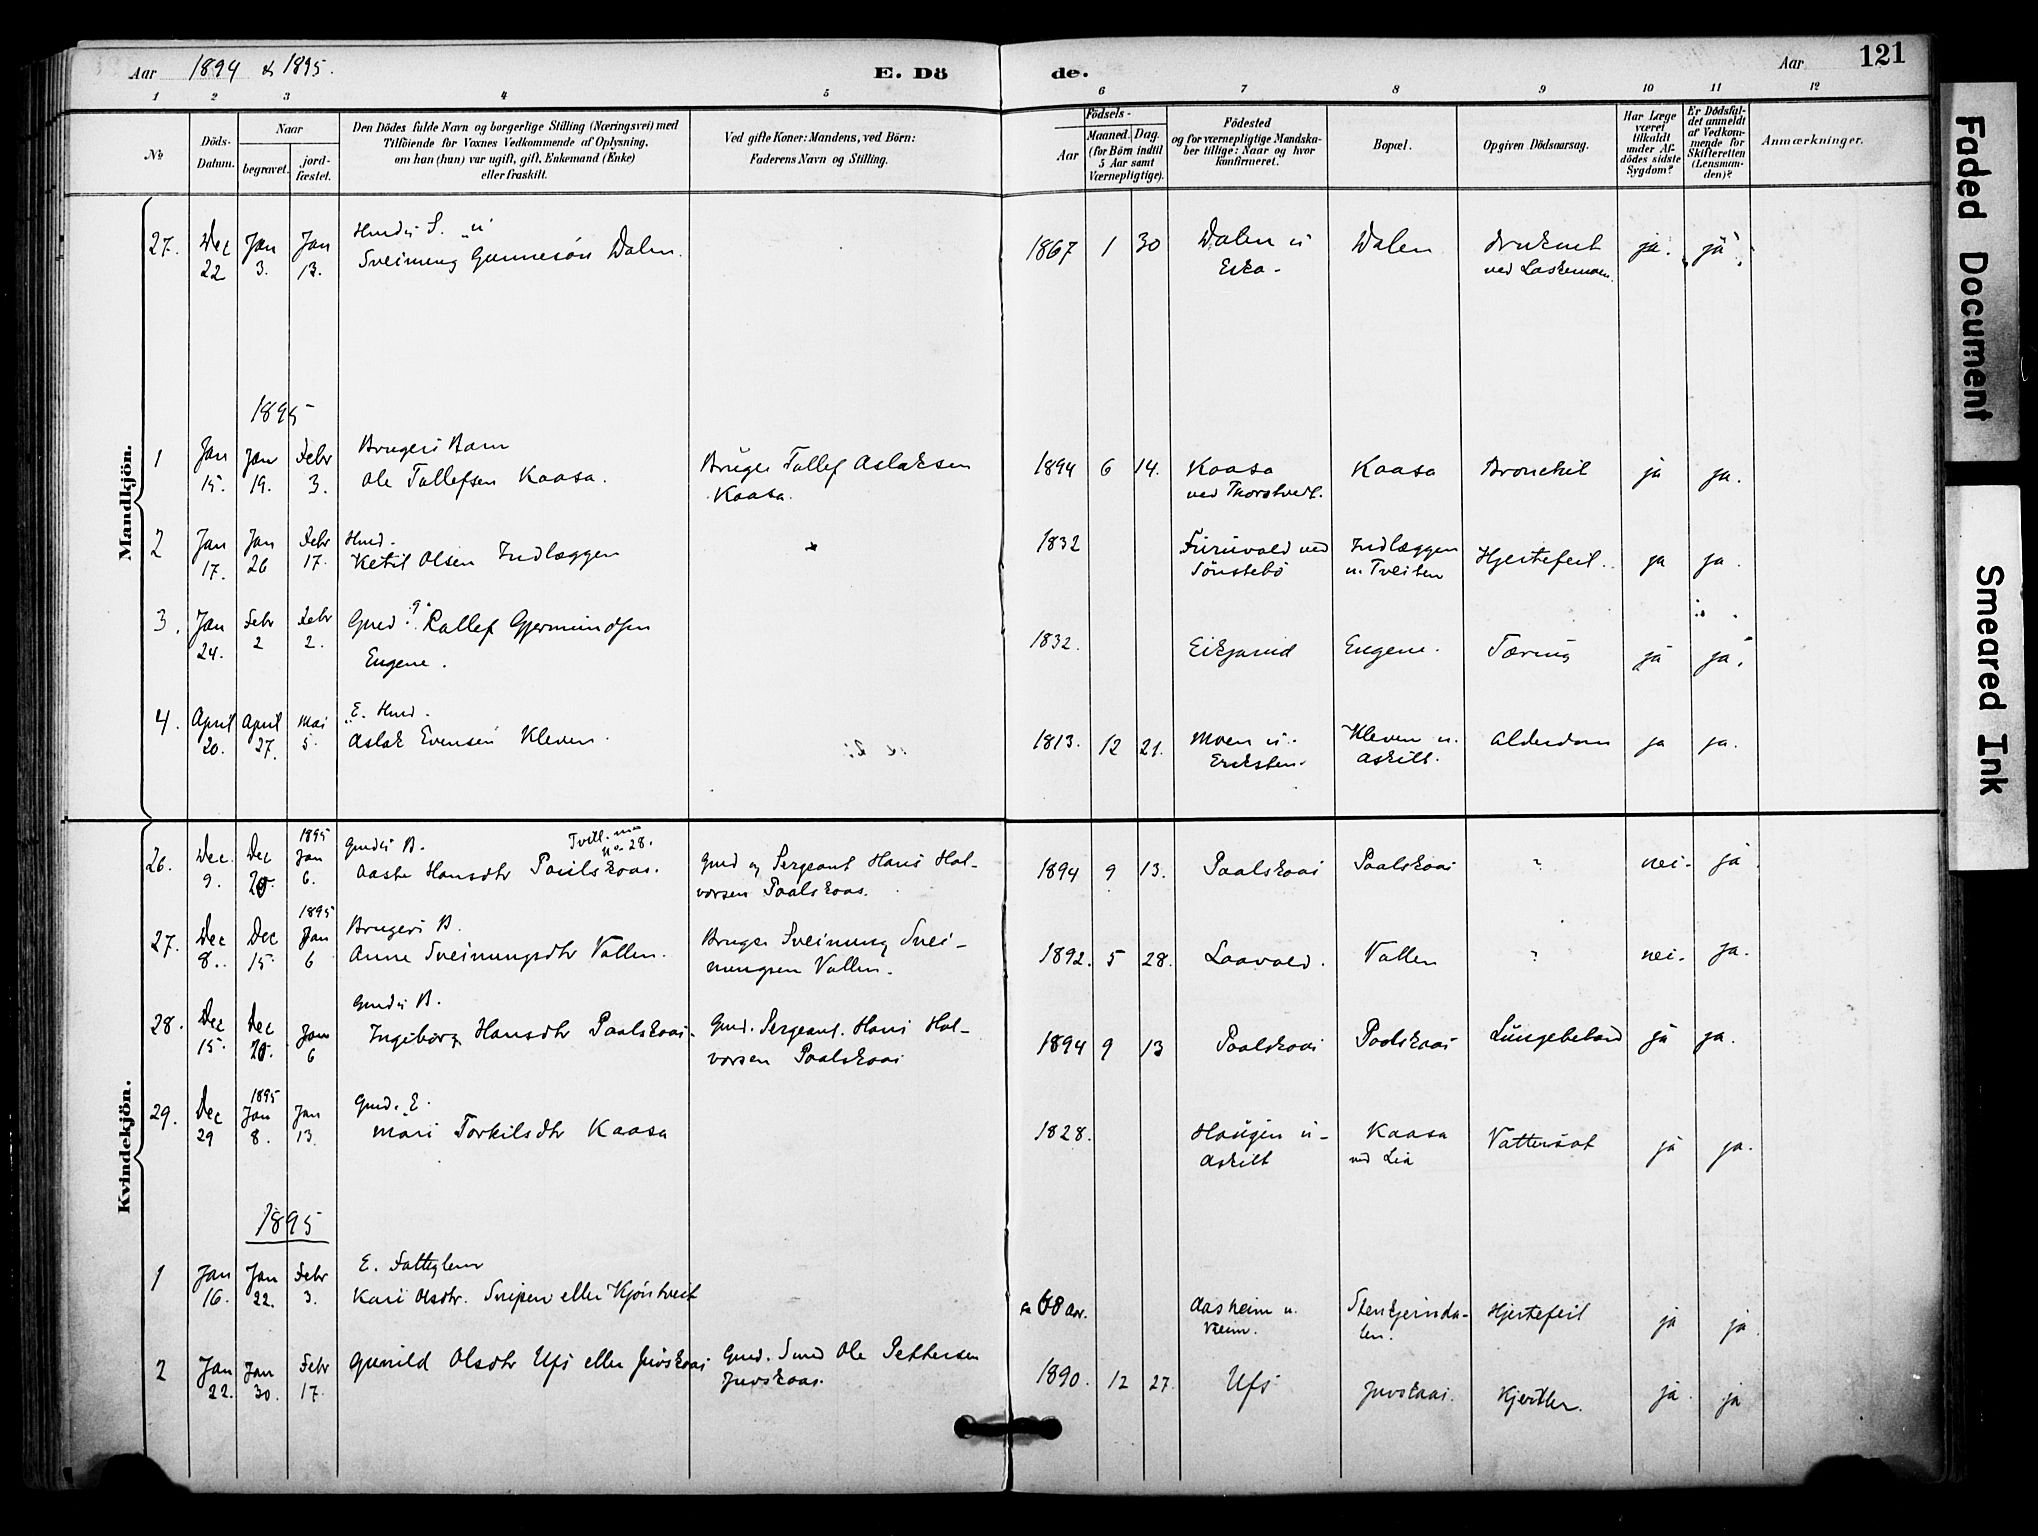 Aar 1894 & 1895.
E. Dö de.
Aar
121
1 2 3 4 5 6 7 8 9 10 11 12
No
Döds-Datum.
Naar
begravet.
jord-fæstet.
Den Dödes fulde Navn og borgerlige Stilling (Næringsvei) med
Tilföiende for Voxnes Vedkommende af Oplysning,
om han (hun) var ugift, gift, Enkemand (Enke)
eller fraskilt.
Ved gifte Koner: Mandens, ved Börn:
Faderens Navn og Stilling.
Födsels-
Aar
Maaned. Dag.
(for Börn indtil
5 Aar samt
Værnepligtige).
Födested
og for værnepligtige Mandska-
ber tillige: Naar og hvor
konfirmeret.
Bopæl.
Opgiven Dödsaarsag.
Har Læge
været
tilkaldt
under Af-
dödes sidste
Sygdom?
Er Dödsfal-
det anmeldt
af Vedkom-
mende for
Skifteretten
(Lensman-
den)?
Anmærkninger.
Mandkjön.
27. Dec 22 Jan 3. Jan 13. Husds S. "u"
Sveinung Gunnesön Dalen. 1867 1 30 Dalen u Eska. Dalen druknet ved ja. ja.
1895
1 Jan 15. Jan 19. Febr 3. Brugers Barn
Ole Tallefsen Kaasa. Bruger Tallef Aslaksen
Kaasa. 1894 6 14. Kaasa ved Thorstveit. Kaasa Bronchit ja ja.
2 Jan 17. Jan 26 Febr 17. Husd.
Ketil Olsen Indlæggen 1832 Furuvald ved Sönstebö Indlæggen u. Tveiten Hjertefeil. ja ja.
3. Jan 24. Febr 2 Febr 2. Gmd. g. Rallef Gjermundsen
Eugene. 1832. Eikjarud Eugene. Tæring ja ja.
4. April 20. April 27. Mai 5. E. Husd.
Aslak Evensen Kleven. 1813. 12 21. Moen u. Kleven u. Askilt. Alderdom ja ja.
Kvindekjön.
26. Dec. 9. Dec 20. 1895 Jan 6. Gmds B. Tvill. m. No. 28.
Aaste Hansdtr Paalskaas. Gmd og Sergeant Hans Hal-
vorsen Paalskaas. 1894 9 13. Paalskaas Paalskaas ? nei. ja.
27. Dec 8. Dec 15. 1895 Jan 6 Brugers B.
Anne Sveinungsdtr Vallen. Bruger Sveinung Svei-
nungsen Vallen. 1892. 5 28. Laavald. Vallen ? nei. ja.
28. Dec 15. Dec 20. Jan 6 Gmds B.
Ingeborg Hansdtr Paalskaas. Gmd. Sergeant. Hans Hal-
vorsen Paalskaas 1894 9 13 Paalskaas Paalskaas ja ja.
29. Dec 29 1895 Jan 8. Jan 13. Gmd. E.
Mari Torkilsdtr Kaasa 1828. Haugen u. Askilt Kaasa ved Lia Vattersot ja ja.
1895
1 Jan 16. Jan 22. Febr 3. E. Fattiglem
Kari Olsdtr. Snipen eller Kjöntveit ca 68 aar. Aasheim u. Veum. Stenkjerinda-
len. Hjertefeil ja ja.
2 Jan 22. Jan 30. Febr 17. Gunild Olsdtr Ufs eller Juvskaas Gmd. Smed Ole Pettersen
Juvskaas. 1890. 12 27. Ufs Juvskaas. Kjertler. ja ja
Faded Document
Smeared Ink